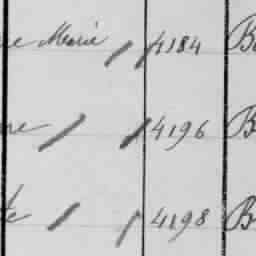 ne Marie 4184 B
ne 4196 B
te 4198 B